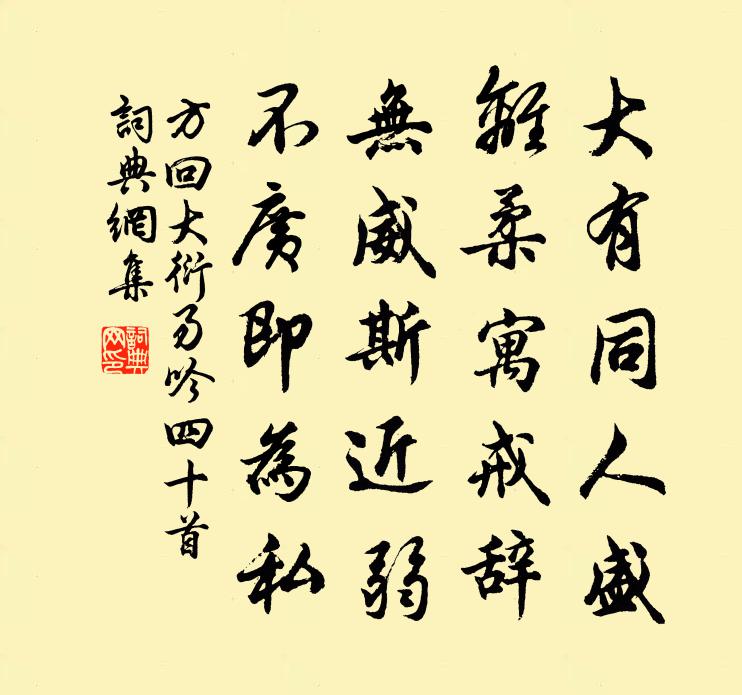 大有同人盛
離柔寓戒辞
無威斯近弱
不廣即為私
方回大衍易吟四十首
詞典網集
詞典網印